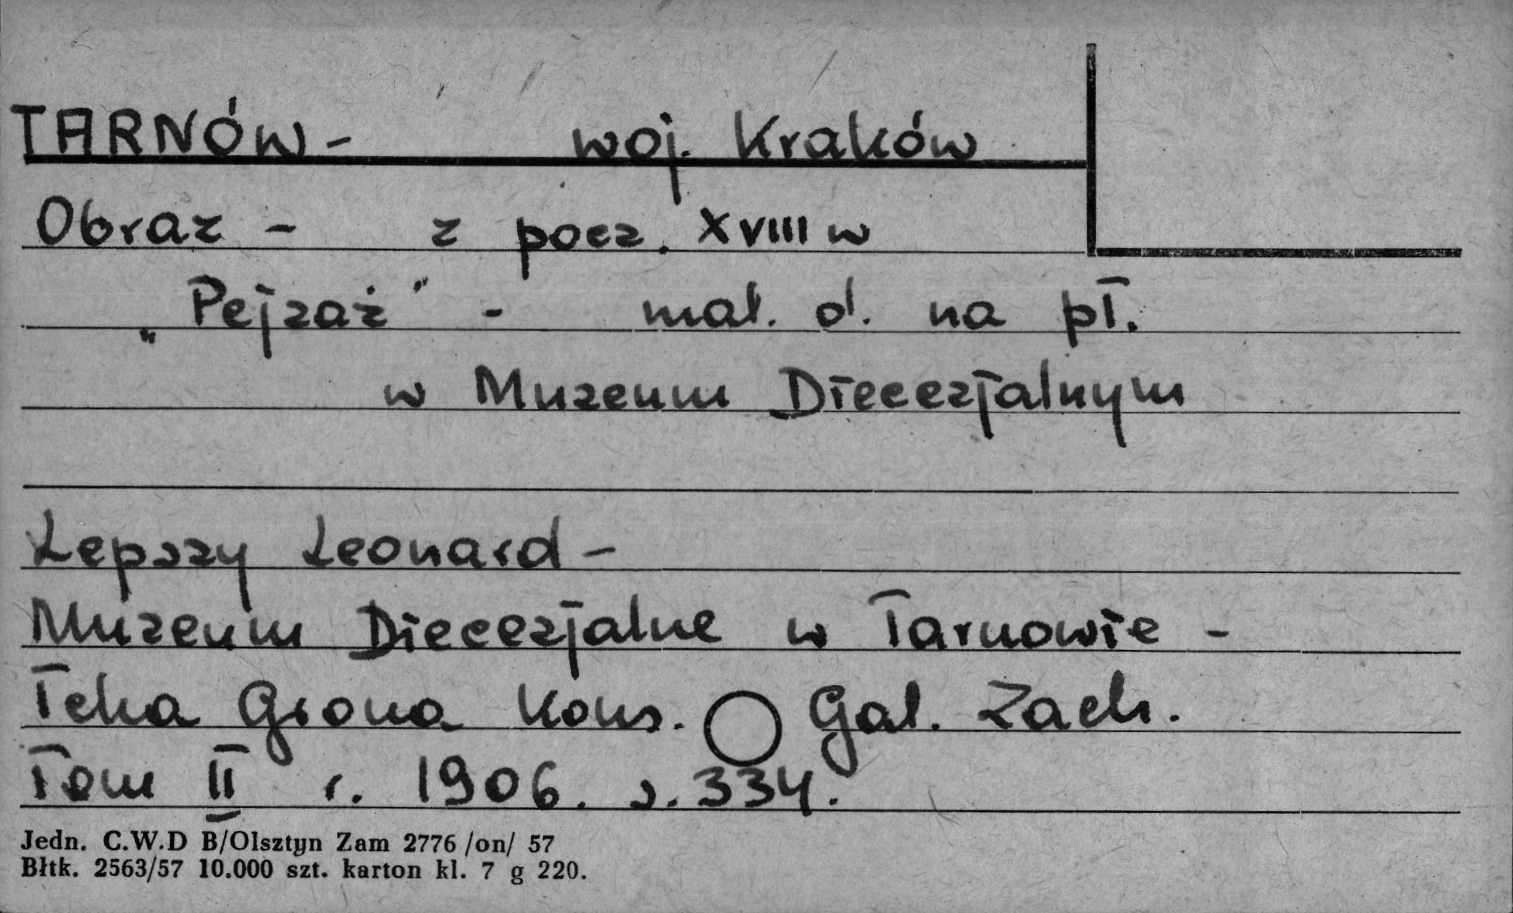 TARNÓW - woj. Kraków
Obraz - z pocz. XVIII w
„Pejzaż" - mal. ol. na pł.
w Muzeum Diecezjalnym
Lepszy Leonard -
Muzeum Diecezjalne w Tarnowie -
Teka Grona Kons. Gal. Zach.
Tom II r. 1906. s. 334.
Jedn. C.W.D B/Olsztyn Zam 2776 /on/ 57
Błtk. 2563/57 10.000 szt. karton kl. 7 g 220.